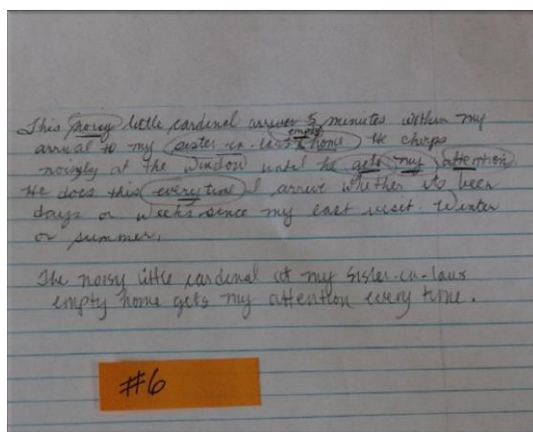 This noisy little cardinal arrives 5 minutes within my
arrival to my sister-in-law's empty home He chirps
noisly at the window until he gets my attention.
He does this everytime I arrive whether its been
days or weeks since my last visit. Winter
or summer.
The noisy little cardinal at my sister-in-laws
empty home gets my attention every time.
#6